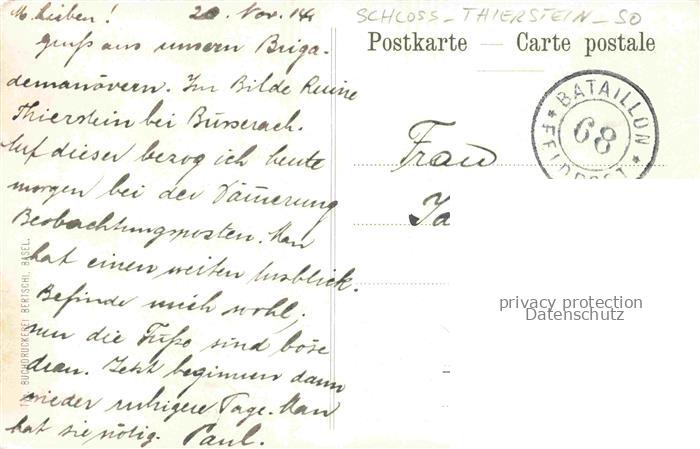 M. Lieben! 20. Nov. 14.
Gruss aus unsern Briga-
demanövern. Im Bilde Ruine
Thierstein bei Büsserach.
Auf dieser bezog ich heute
morgen bei der Dämerung
Beobachtungsposten. Man
hat einen weiten Ausblick.
Befinde mich wohl,
nur die Füsse sind böse
dran. Jetzt beginnen dann
wieder ruhigere Tage. Man
hat sie nötig. Paul.
BUCHDRUCKEREI BERTSCHI, BASEL.
SCHLOSS - THIERSTEIN - SO
Postkarte — Carte postale
BATAILLON
68
FELDPOST
Frau
Ja
privacy protection
Datenschutz